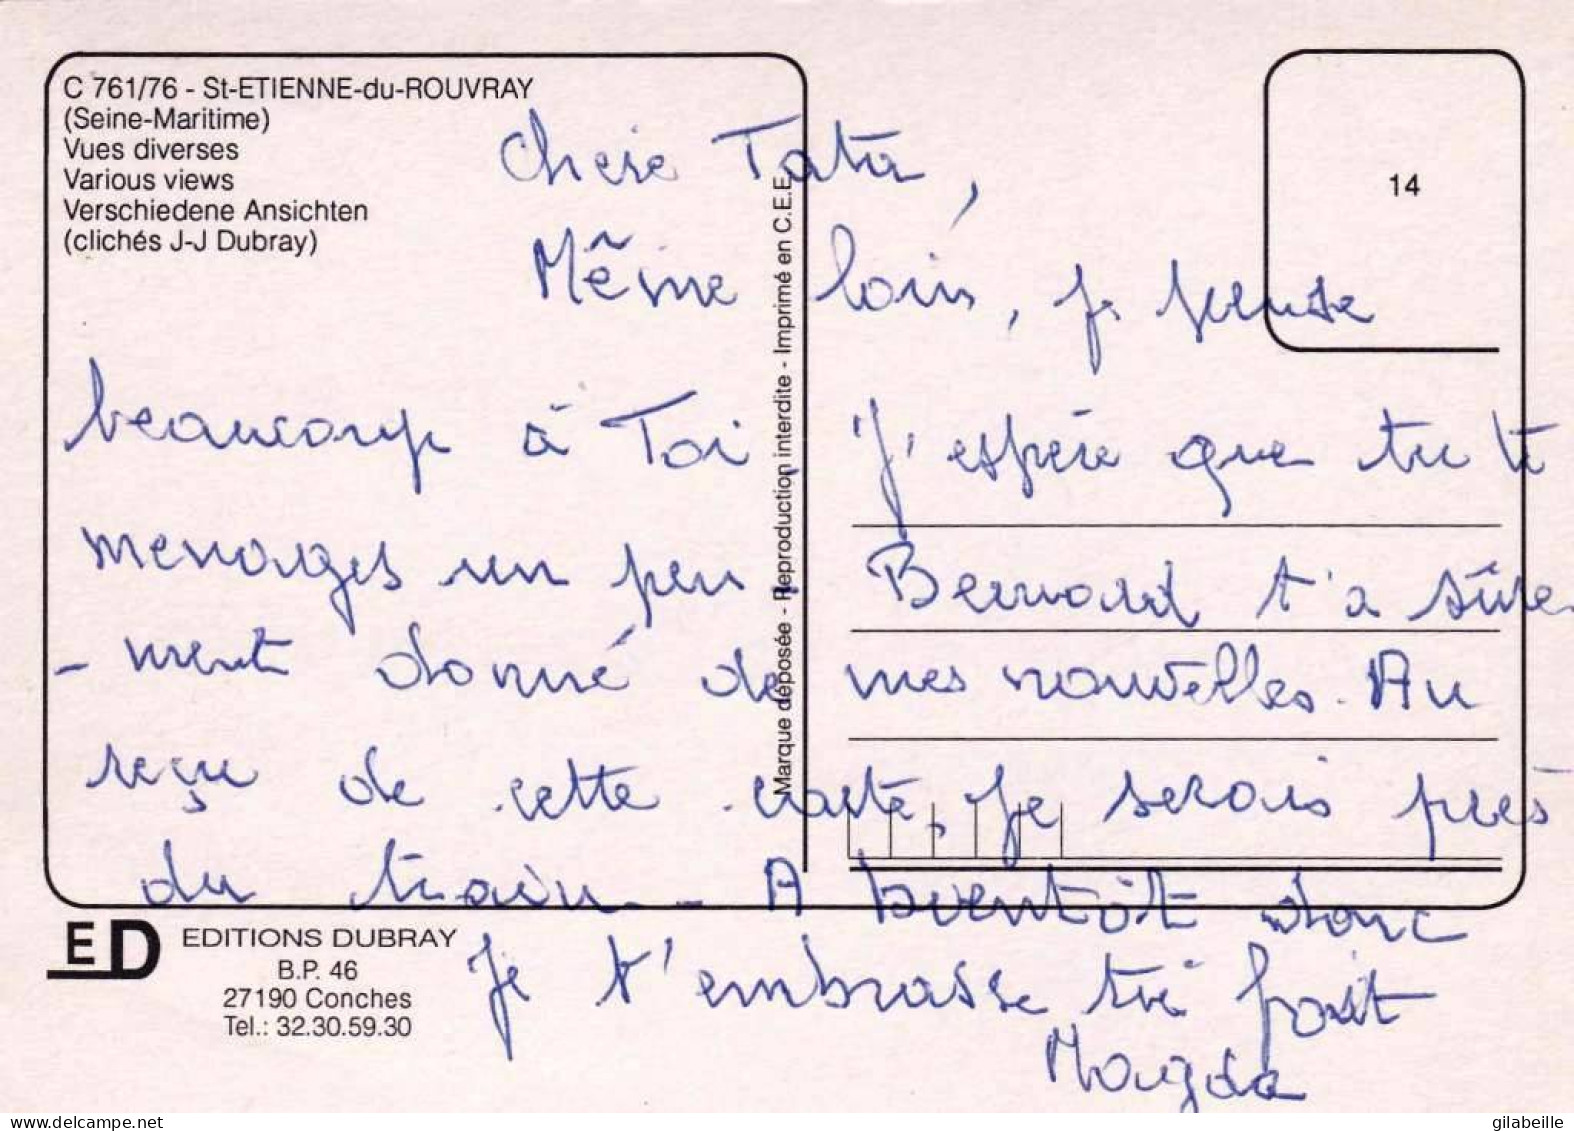 C 761/76 - St-ETIENNE-du-ROUVRAY
(Seine-Maritime)
Vues diverses
Various views
Verschiedene Ansichten
(clichés J-J Dubray)
14
Marque déposée - Reproduction interdite - Imprimé en C.E.E.
Chere Tata,
Même loin, je pense
beaucoup à Toi. J'espère que tu te
menages un peu. Bernard t'a sûre-
-ment donné de mes nouvelles. Au
reçu de cette carte, je serais près
du train. - A bientôt donc
Je t'embrasse très fort
Magda
ED
EDITIONS DUBRAY
B.P. 46
27190 Conches
Tel.: 32.30.59.30
www.delcampe.net
gilabeille